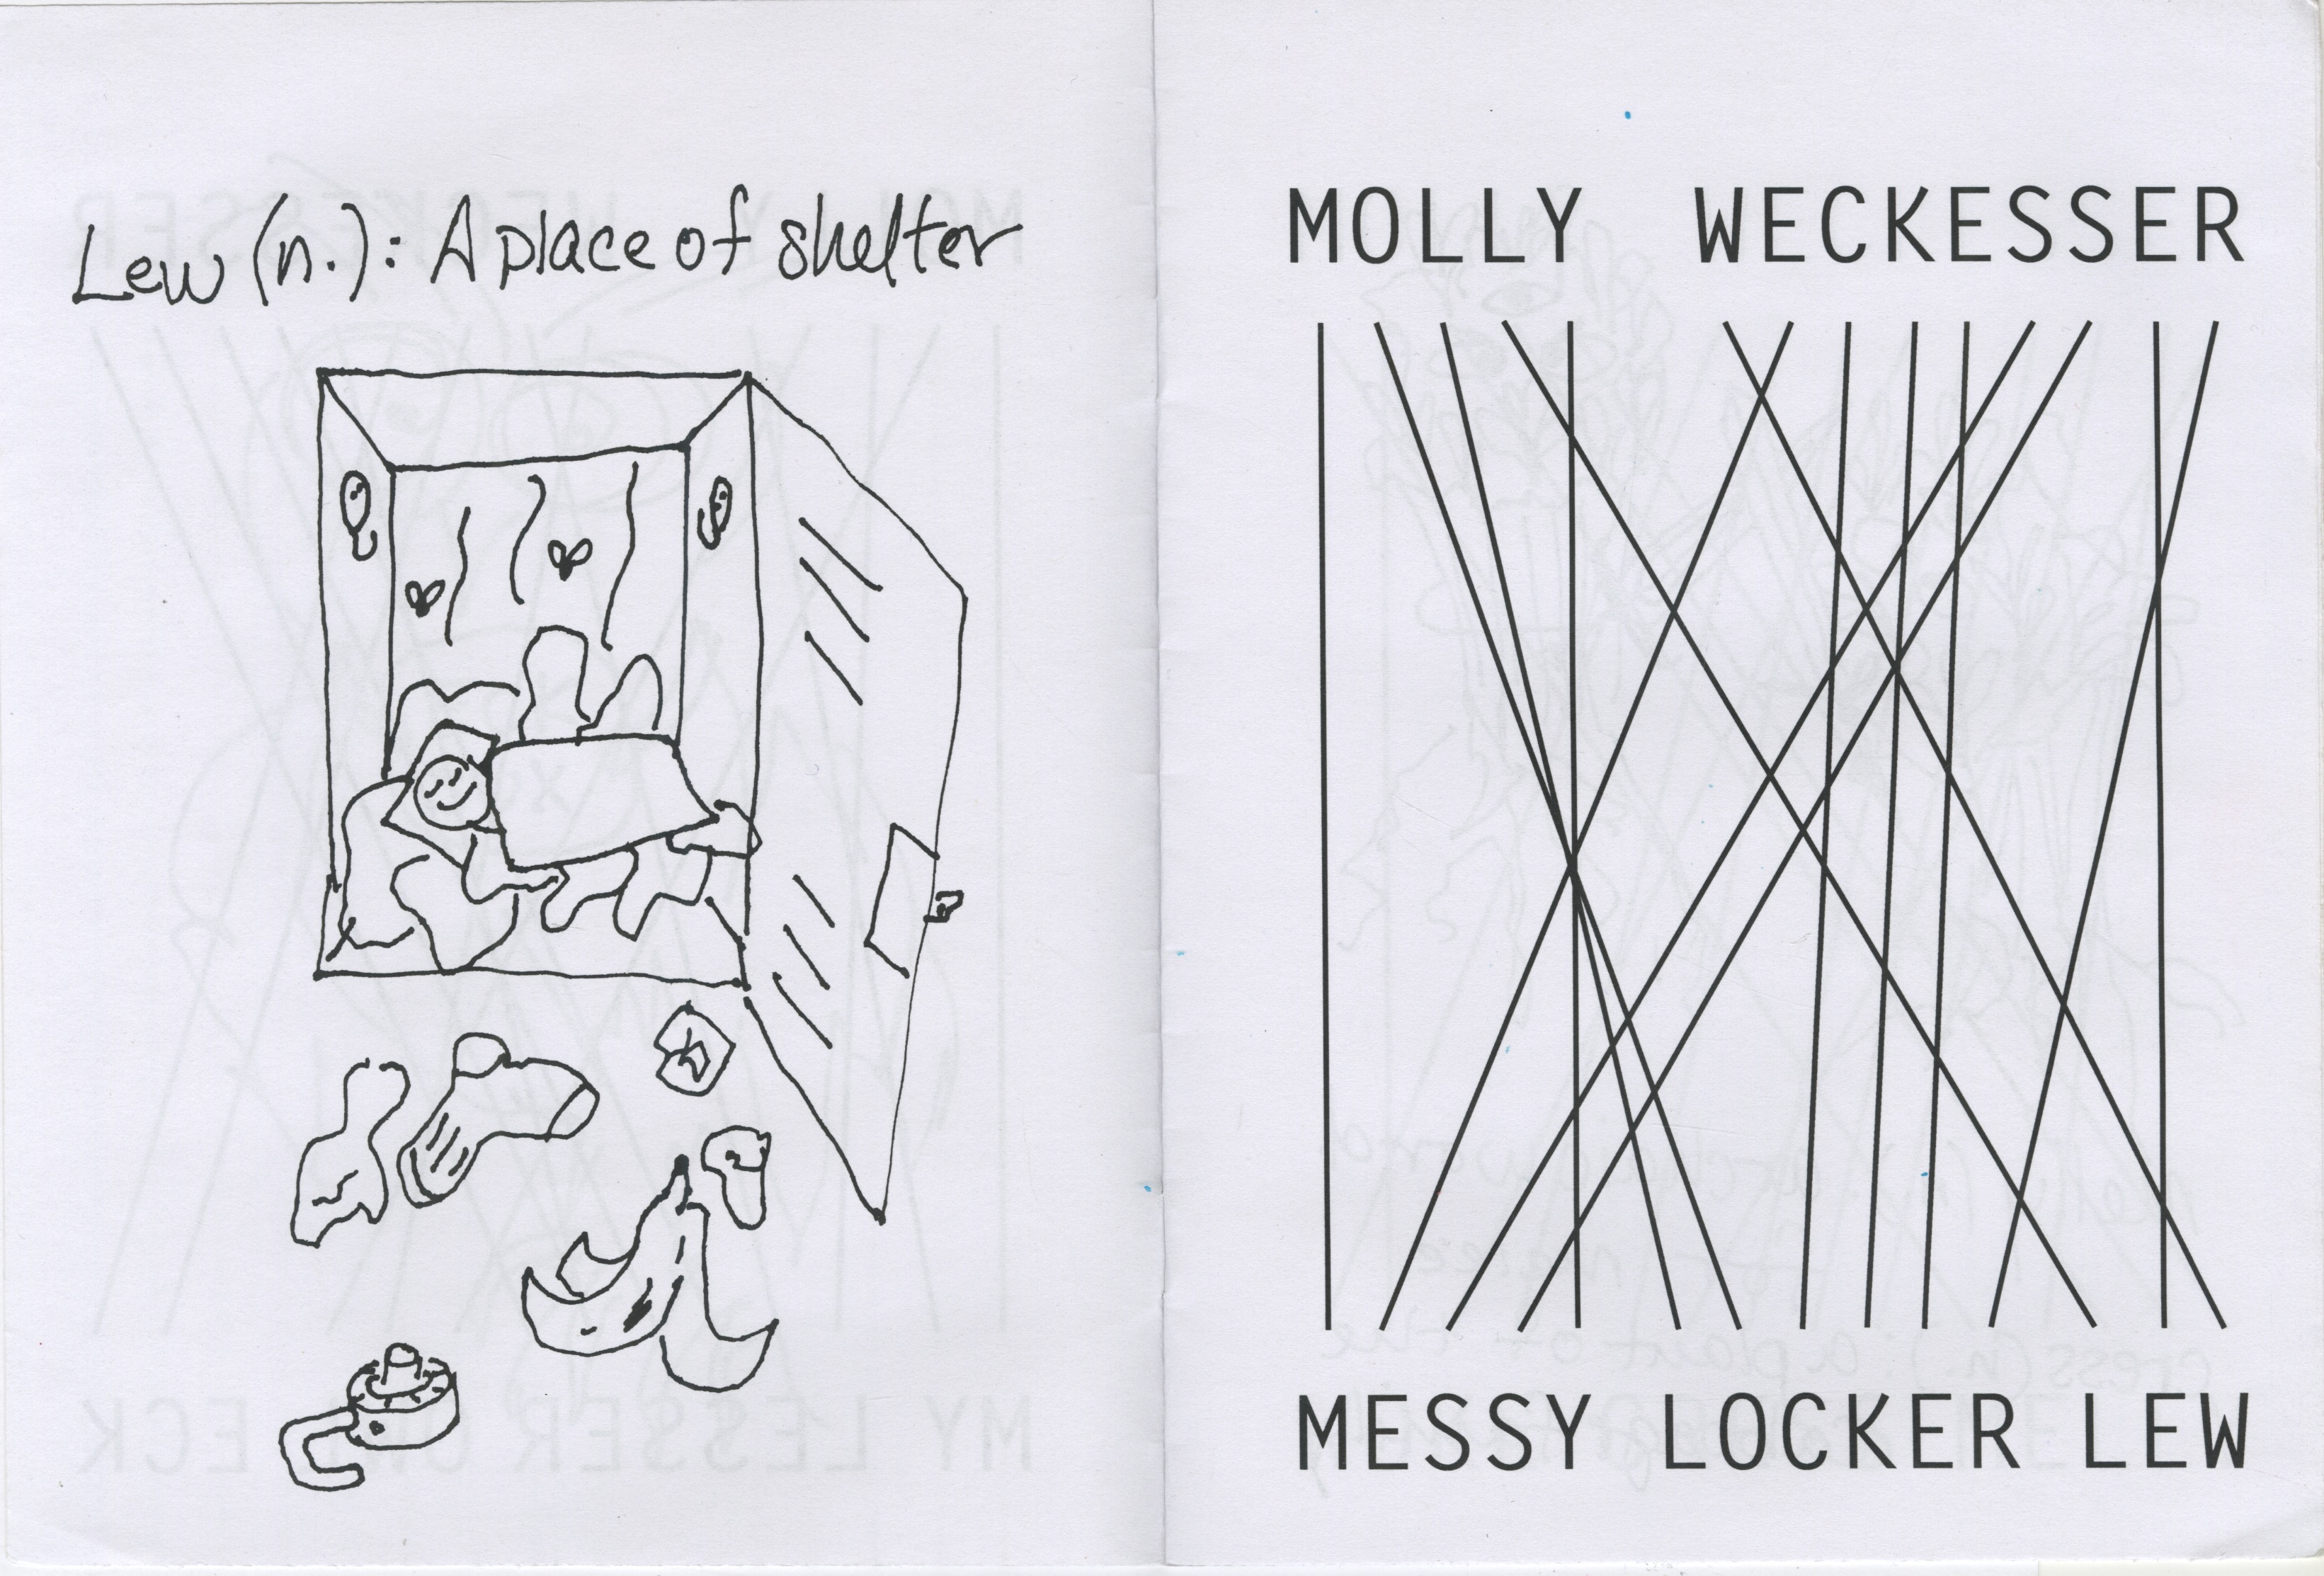 Lew (n.): A place of shelter
MOLLY WECKESSER
MESSY LOCKER LEW